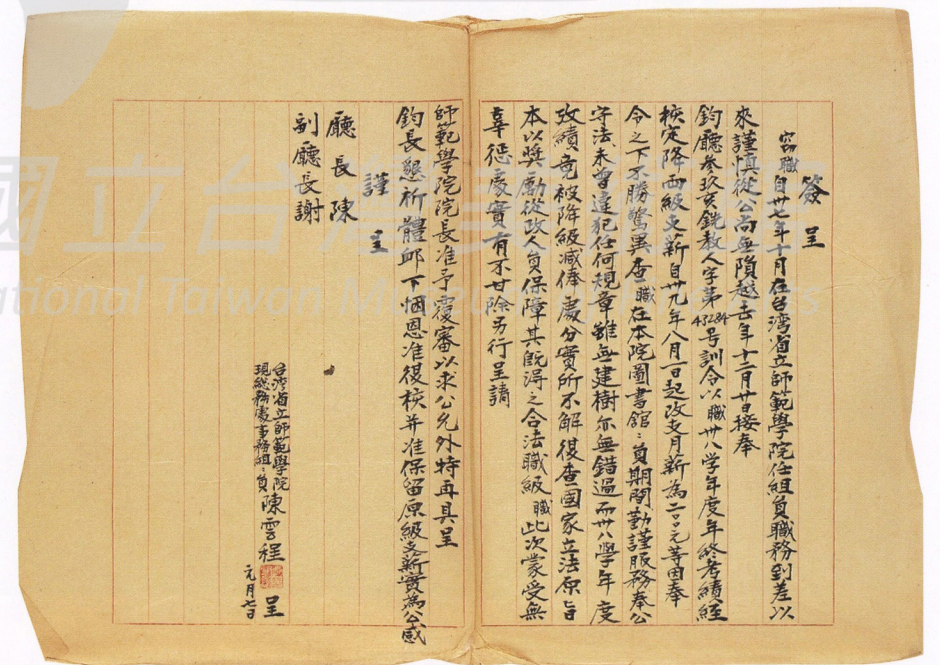 簽呈
窃職自卅七年十月在台湾省立師範學院任組員職務到差以
來謹慎從公尚無隕越去年十二月廿日接奉
鈞廳參玖亥銑教人字第43284号訓令以職卅八学年度年終考績經
核定降兩級支薪自卅九年八月一日起改支月薪為二〇〇元等因奉
令之下不勝驚異查職在本院圖書館:員期間勤謹服務奉公
守法未曾違犯任何規章雖無建樹亦無錯過而卅八學年度
攷績竟被降級減俸處分實所不解復查國家立法原旨
本以奬勵從政人員保障其既得之合法職級職此次蒙受無
辜惩處實有不甘除另行呈請
師範學院院長准予覆審以求公允外特再具呈
鈞長懇祈體邺下悃恩准復核并准保留原級支薪實為公感
謹呈
廳長陳
副廳長謝
台湾省立師範學院
現總務處事務組:員陳雲程呈
元月七日
國立台灣
National Taiwan M